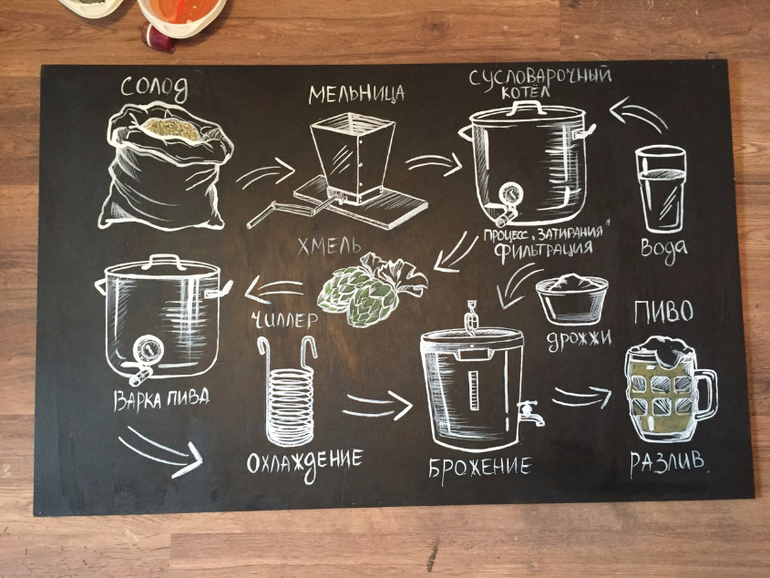 СОЛОД
МЕЛЬНИЦА
СУСЛОВАРОЧНЫЙ
КОТЁЛ
ВОДА
ПРОЦЕСС „ЗАТИРАНИЯ"
ФИЛЬТРАЦИЯ
ХМЕЛЬ
ВАРКА ПИВА
ЧИЛЛЕР
ОХЛАЖДЕНИЕ
ДРОЖЖИ
БРОЖЕНИЕ
ПИВО
РАЗЛИВ.